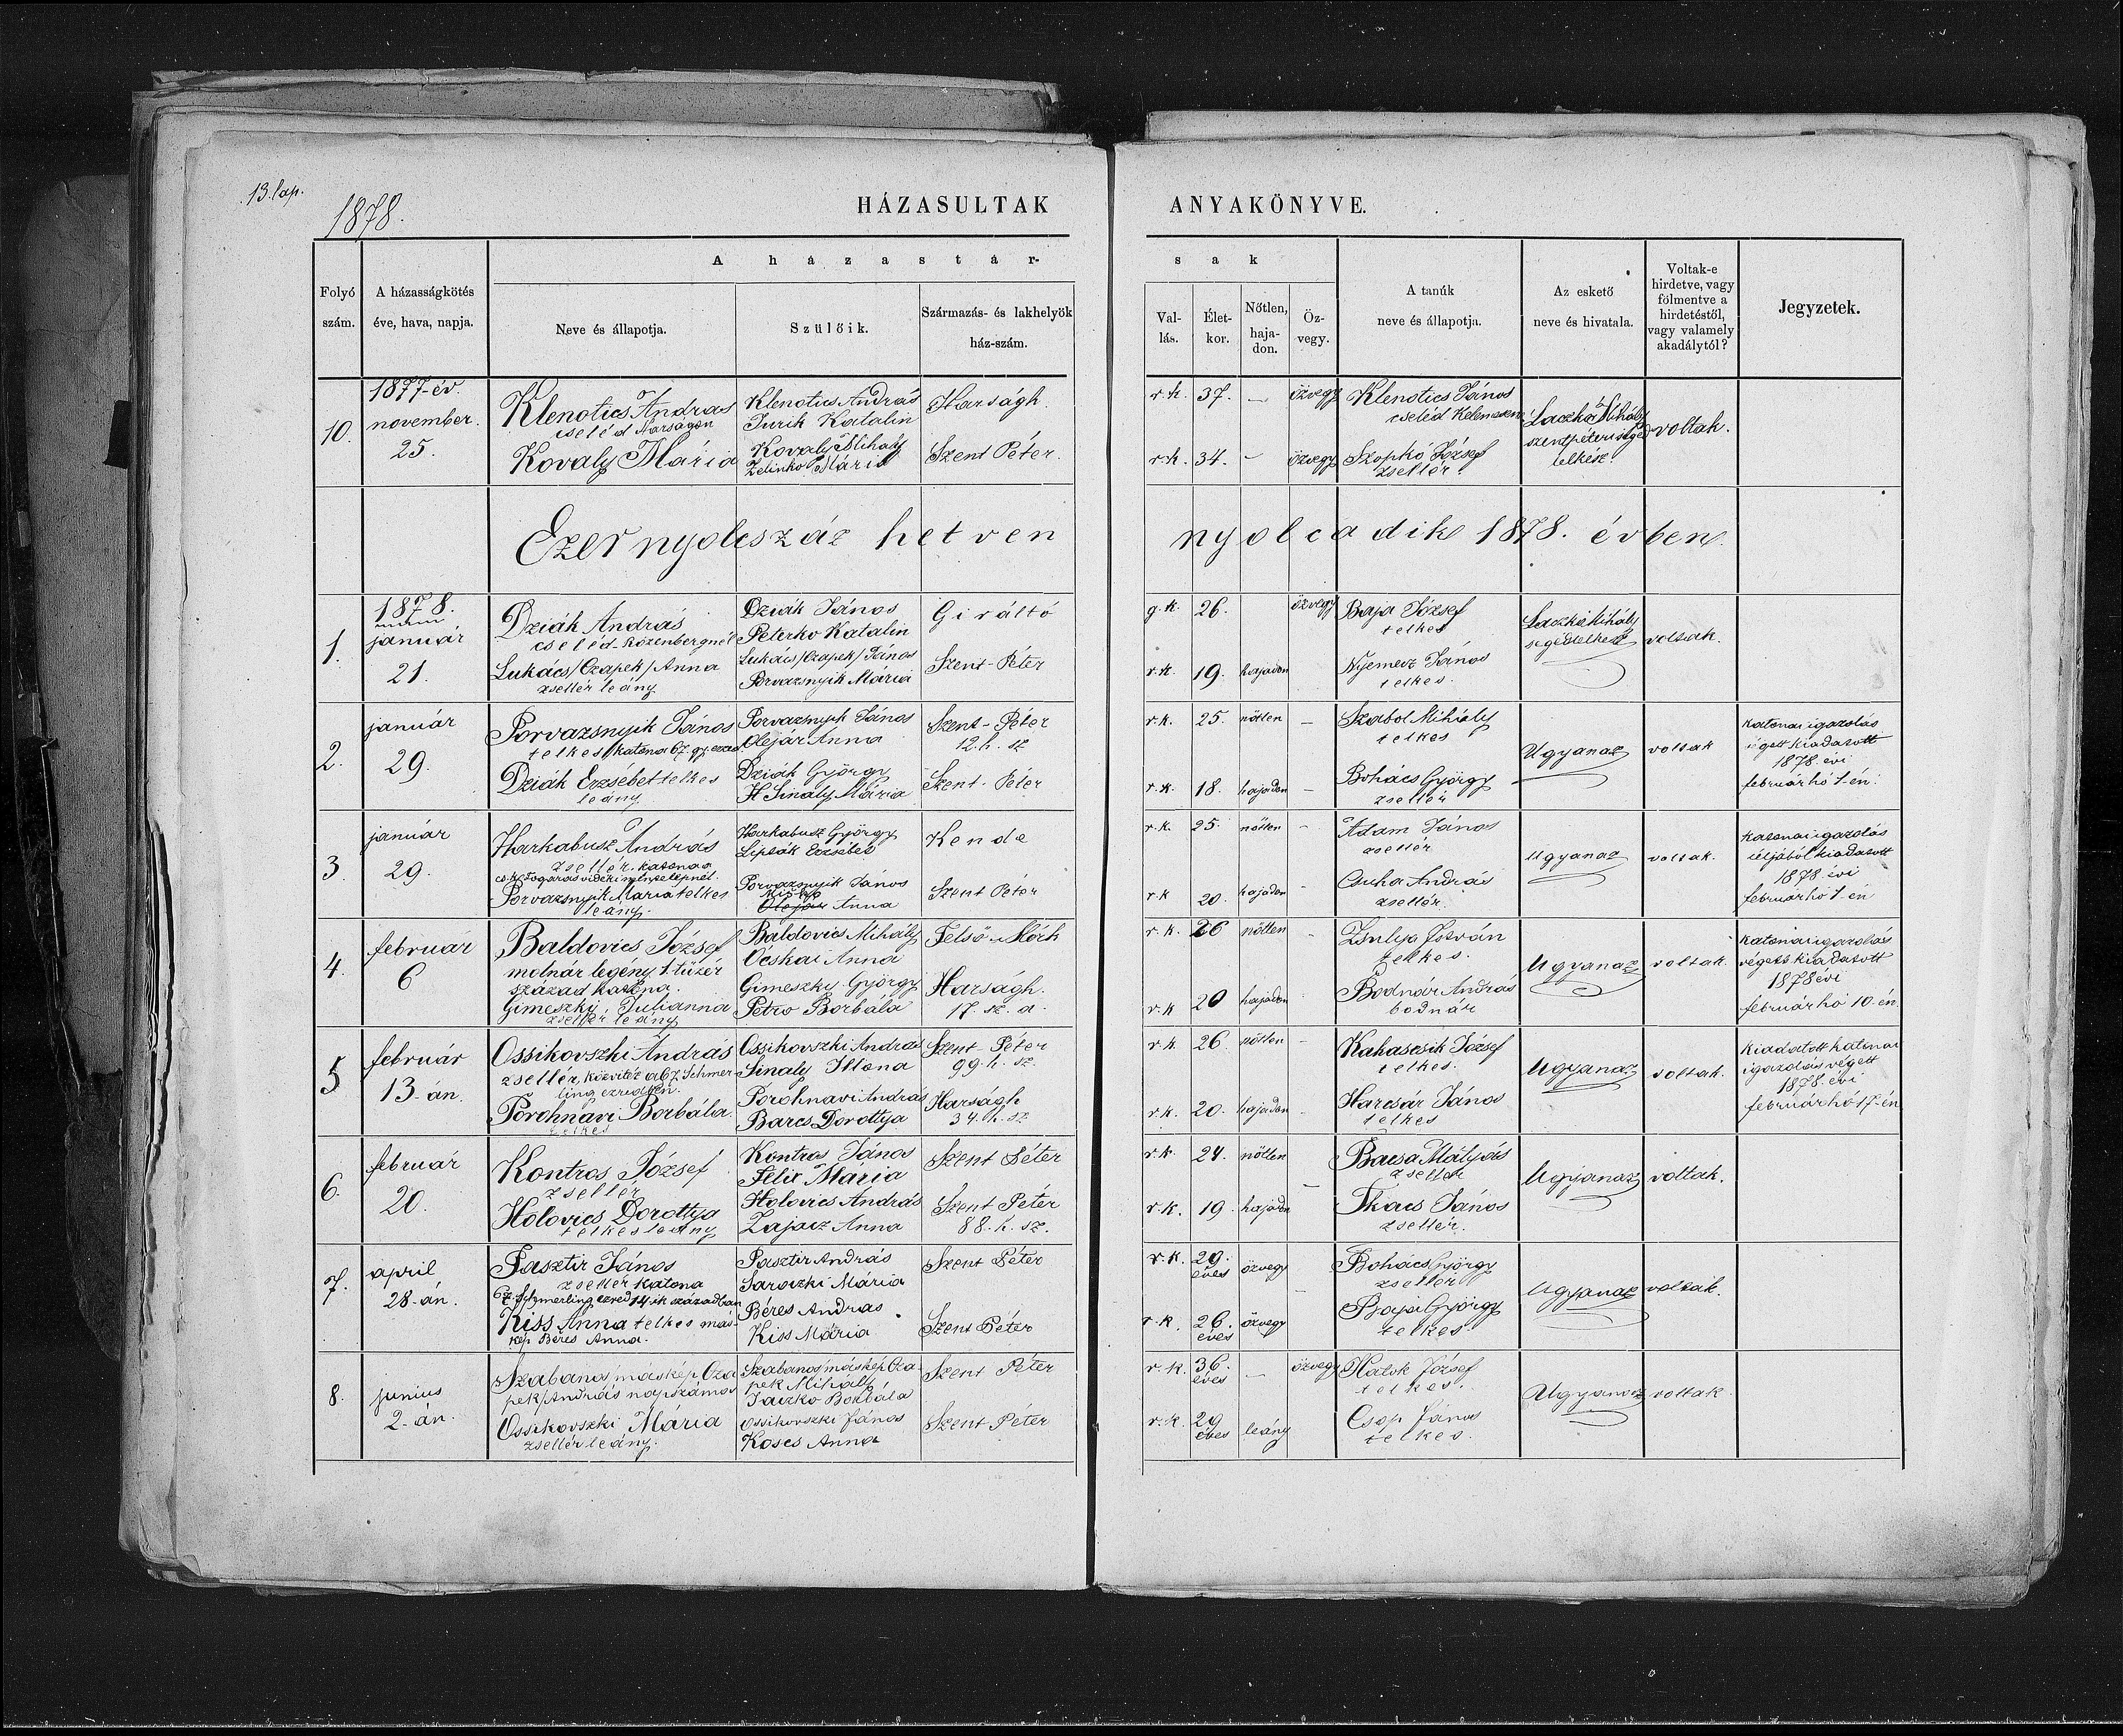 13. lap.
1878.
HÁZASULTAK ANYAKÖNYVE.
Folyó szám.
A házasságkötés éve, hava, napja.
A házastár-
Neve és állapotja.
Szülőik.
Származás- és lakhelyök
ház-szám.
sak
Val-
lás.
Élet-
kor.
Nőtlen,
haja-
don.
Öz-
vegy.
A tanúk
neve és állapotja.
Az eskető
neve és hivatala.
Voltak-e
hirdetve, vagy
fölmentve a
hirdetéstől,
vagy valamely
akadálytól?
Jegyzetek.
10.
1877-év.
november.
25.
Klenotics András
cseléd Harságon
Kovaly Mária
Klenotics András
Jurik Katalin
Kovaly Mihály
Zelinko Mária
Harságh.
Szent Péter.
r.k. 37. — özvegy
r.k. 34. – özvegy
Klenotics János
cseléd
Szopkó József
zsellér.
Laczkó Mihály
szentpéteri segéd
lelkész.
voltak.
Ezernyolcszáz hetven nyolcadik 1878. évben.
1.
1878.
január
21.
Dziák András
cseléd Rózenbergnél
Lukács/Czapek/Anna
zsellér leány
Dziák János
Peterko Katalin
Lukács/Czapek/János
Porvazsnyik Mária
Giráltó
Szent-Péter
g.k. 26. özvegy
r.k. 19. hajadon
Baja József
telkes
Nyemecz János
telkes.
Laczkó Mihály
segédlelkész
voltak.
2.
január
29.
Porvazsnyik János
telkes, katona 67. gy. ezred
Dziák Erzsébet telkes
leány
Porvazsnyik János
Olejár Anna
Dziák György
H Sinaly Mária
Szent-Péter
12. h. sz
Szent-Péter
r.k. 25. nőtlen –
r.k. 18. hajadon –
Szabol Mihály
telkes
Bohács György
zsellér
Ugyanaz
voltak
katonai igazolás
végett kiadatott
1878. évi
február hó 1-én.
3.
január
29.
Harkabusz András
zsellér, katona a
cs. k. Fogaras vidéki méntelepnél.
Porvazsnyik Mária telkes
leány.
Harkabusz György
Lipták Erzsébet
Porvazsnyik János
Olejár Anna
Kende
Szent Péter
r.k. 25. nőtlen –
r.k 20. hajadon –
Ádam János
zsellér
Csuha András
zsellér.
Ugyanaz
voltak.
katonai igazolás
céljából kiadatott
1878 évi
február hó 1-én
4.
február
6
Baldovics József
molnár legény 1. tüzér
század katona.
Gimeszky Julianna
zsellér leány
Baldovics Mihály
Ocskai Anna
Gimeszky György
Petro Borbála
Felső-
Harságh.
17. sz. a.
r.k. 26 nőtlen
r.k 20 hajadon
Zsulya István
telkes.
Bodnár András
bodnár
Ugyanaz
voltak.
katonai igazolás
végett kiadatott
1878 évi
február hó 10-én
5
február
13-án.
Ossikovszki András
zsellér, közvitéz a 67. Schmer-
ling ezredben.
Porohnavi Borbála
telkes
Ossikovszki András
Sinaly Illona
Porohnavi András
Barcs Dorottya
Szent Péter
99. h. sz.
Harságh
34. h. sz
r.k 26 nőtlen –
r.k. 20. hajadon –
Kahascsik József
telkes.
Harcsár János
telkes
Ugyanaz
voltak.
kiadatott katonai
igazolás végett
1878 évi
február hó 17-én
6.
február
20.
Kontros József
zsellér
Holovics Dorottya
telkes leány
Kontros János
Felix Mária
Holovics András
Zajacz Anna
Szent Péter
Szent Péter
88. h. sz.
r.k. 24. nőtlen
r.k. 19. hajadon
Bacsa Mátyás
zsellér
Tkács János
zsellér.
Ugyanaz
voltak.
7.
april
28-án.
Pasztir János
zsellér katona
67. Schmerling ezred 14-ik században
Kiss Anna telkes más-
kép Béres Anna.
Pasztir András
Saroczki Mária
Béres András
Kiss Mária
Szent Péter
Szent Péter
r.k. 29.
éves özvegy
r.k. 26.
éves özvegy
Bohács György
zsellér
Baja György
telkes
Ugyanaz
voltak.
8.
junius
2-án.
Szabanos máskép Cza
pek/András napszámos
Ossikovszki Mária
zsellér leány.
Szabanos máskép Cza-
pek Mihály
Taczko Borbála
Ossikovszki János
Koscs Anna
Szent Péter
Szent Péter
r.k. 36.
éves — özvegy
r.k. 29
éves leány
Hatok József
telkes.
Csop János
telkes.
Ugyanaz
voltak.